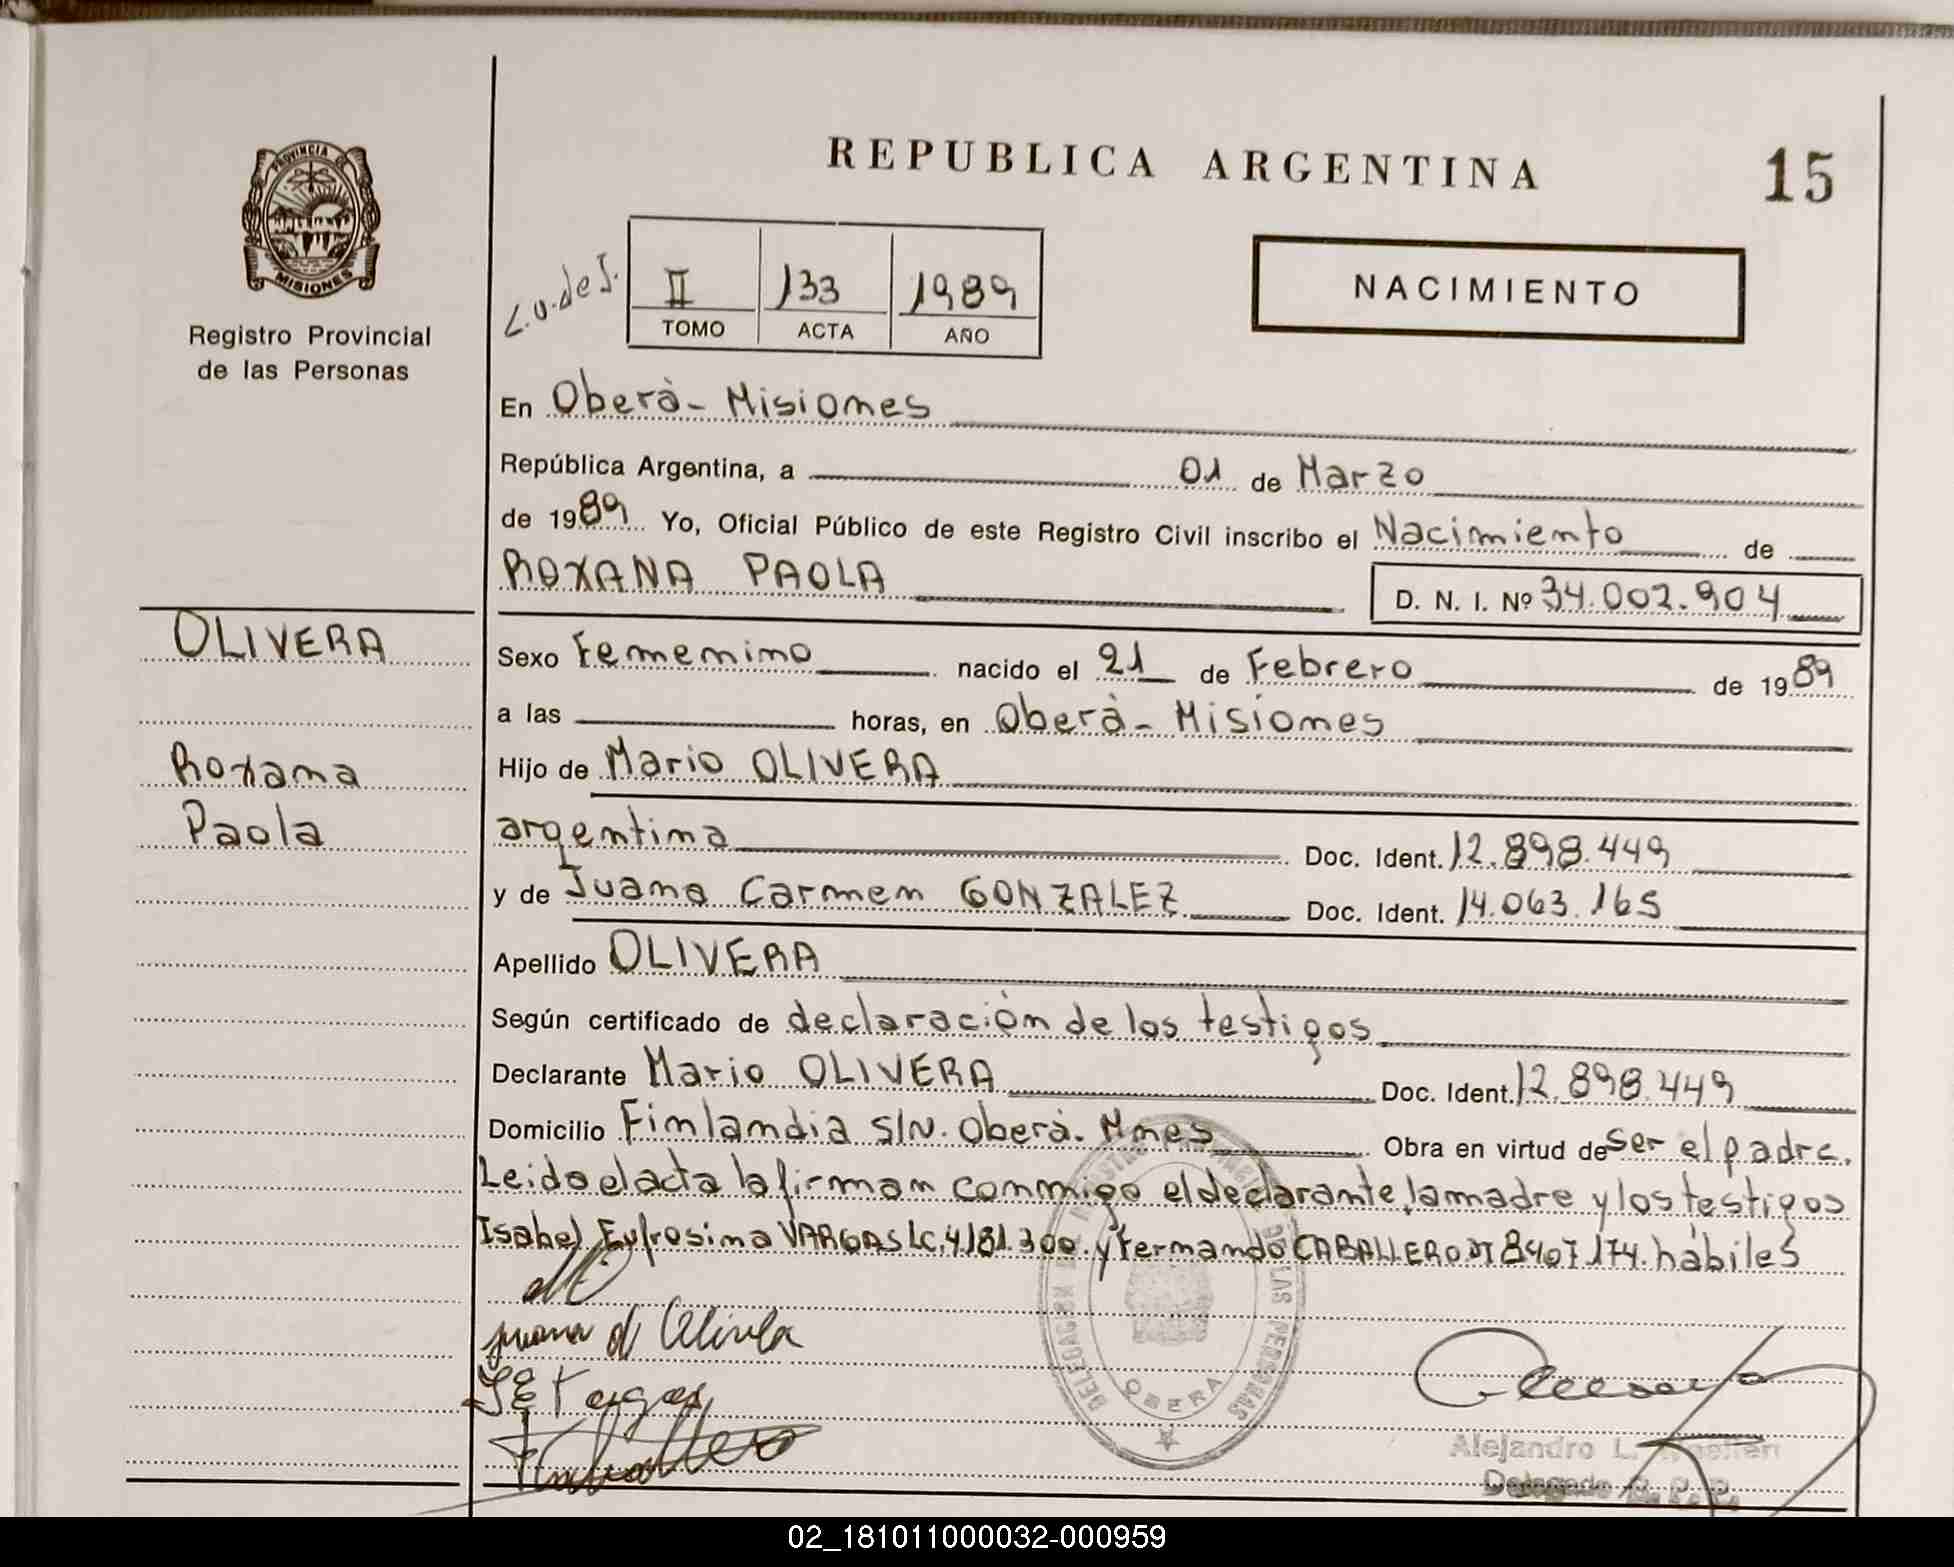 PROVINCIA DE
MISIONES
Registro Provincial
de las Personas
REPUBLICA ARGENTINA
15
L.U. de I.
II 133 1989
TOMO ACTA AÑO
NACIMIENTO
En Oberà - Misiones
República Argentina, a 01 de Marzo
de 1989 Yo, Oficial Público de este Registro Civil inscribo el Nacimiento de
ROXANA PAOLA
D. N. I. Nº 34.002.904
OLIVERA
Roxana
Paola
Sexo Femenino nacido el 21 de Febrero de 1989
a las horas, en Oberà - Misiones
Hijo de Mario OLIVERA
argentina Doc. Ident. 12.898.449
y de Juana Carmen GONZALEZ Doc. Ident. 14.063.165
Apellido OLIVERA
Según certificado de declaraciòn de los testigos
Declarante Mario OLIVERA Doc. Ident. 12.898.449
Domicilio Finlandia S/N. Oberà. Mnes Obra en virtud de ser el padre.
Leido el acta la firman conmigo el declarante, la madre y los testigos
Isabel Eufrosina VARGAS LC. 4181.300. y Fernando CABALLERO DI 8407174. hábiles
juana d Olivera
I E Vargas
DELEGACION DE LAS PERSONAS
OBERA
Alejandro L.
Delegado R. P. P.
02_181011000032-000959